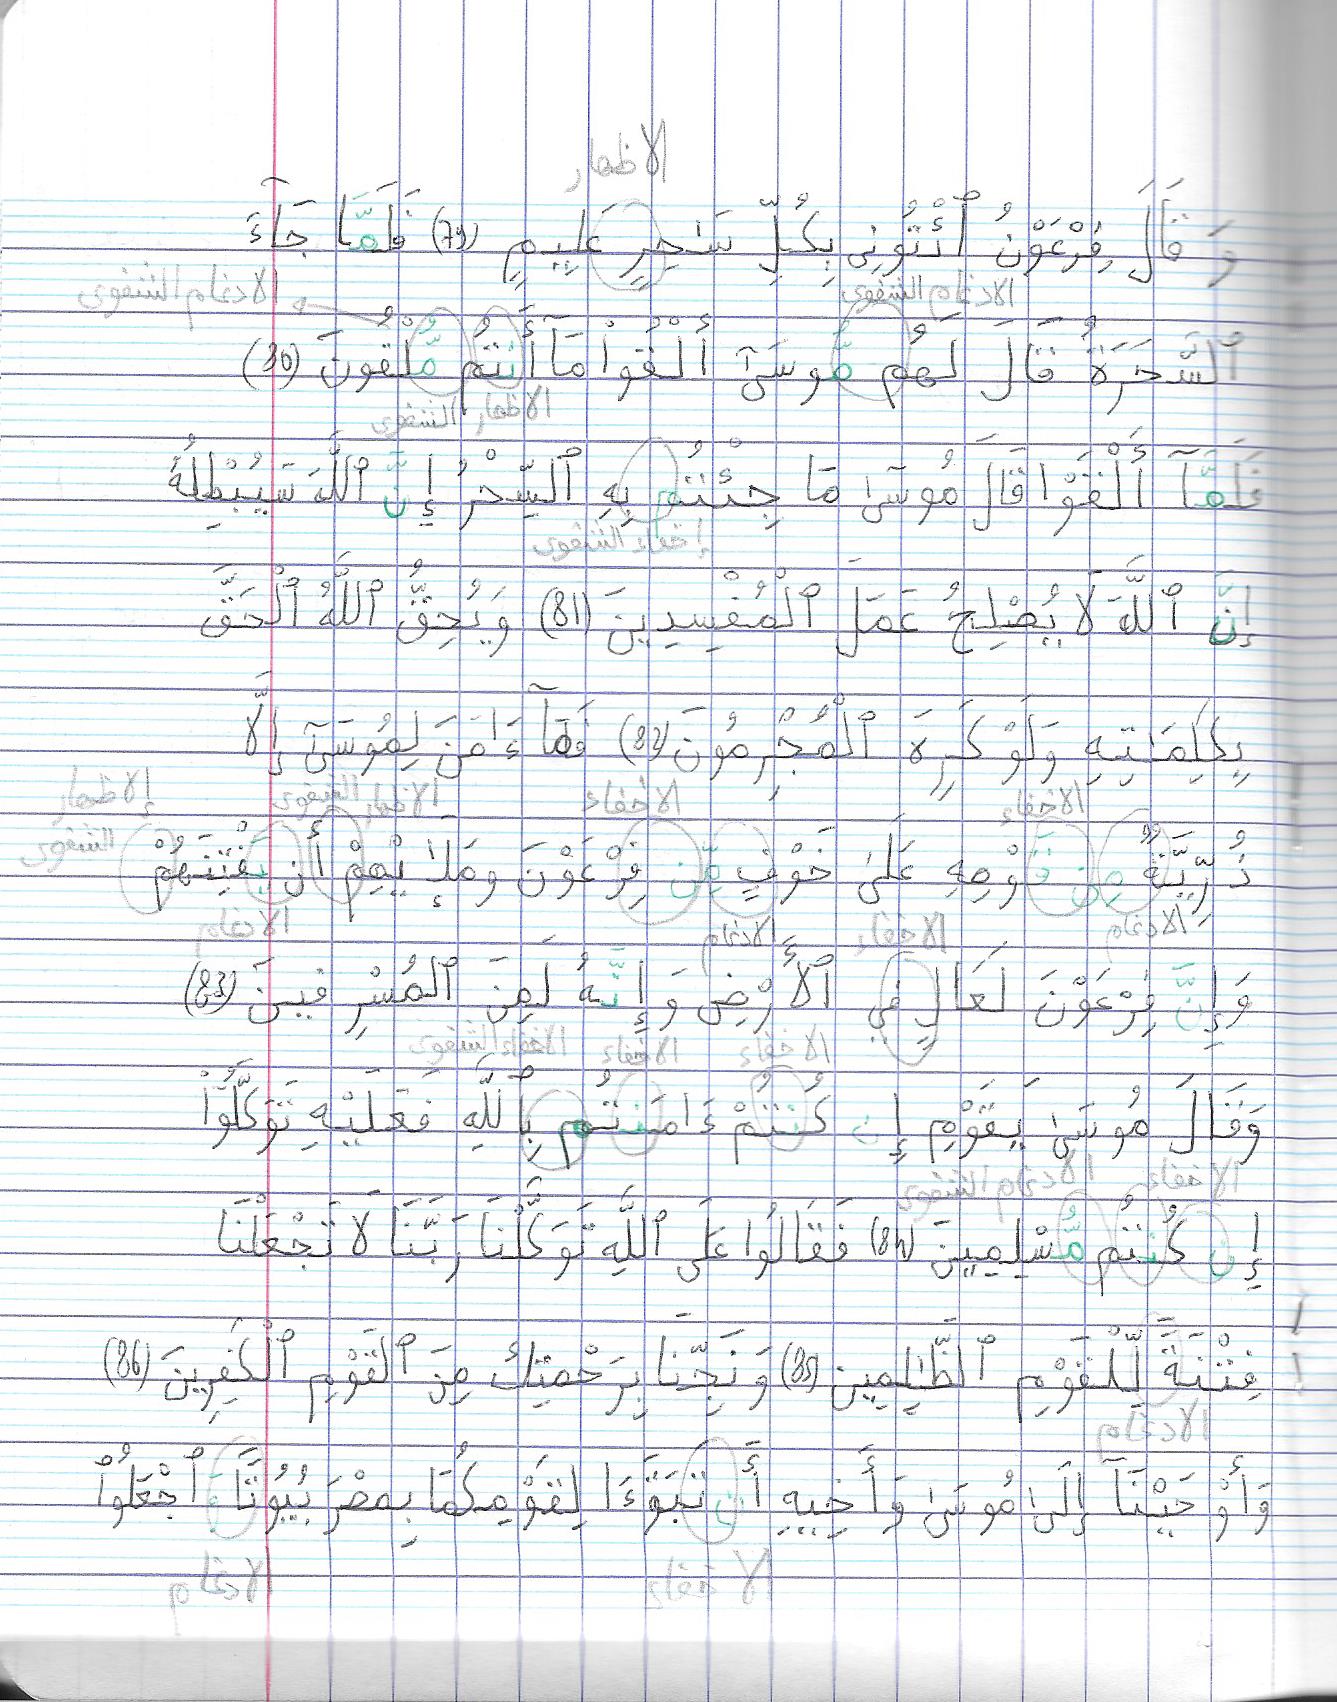 الاظهار
وَقَالَ فِرْعَوْنُ ٱئْتُونِى بِكُلِّ سَٰحِرٍ عَلِيمٍ (79) فَلَمَّا جَآءَ
الادغام الشفوي الادغام الشفوي
ٱلسَّحَرَةُ قَالَ لَهُم مُّوسَىٰٓ أَلْقُوا۟ مَآ أَنتُم مُّلْقُونَ (80)
الاظهار الشفوي
فَلَمَّآ أَلْقَوْا۟ قَالَ مُوسَىٰ مَا جِئْتُم بِهِ ٱلسِّحْرُ إِنَّ ٱللَّهَ سَيُبْطِلُهُۥٓ
إخفاء الشفوي
إِنَّ ٱللَّهَ لَا يُصْلِحُ عَمَلَ ٱلْمُفْسِدِينَ (81) وَيُحِقُّ ٱللَّهُ ٱلْحَقَّ
بِكَلِمَٰتِهِ وَلَوْ كَرِهَ ٱلْمُجْرِمُونَ (82) فَمَآ ءَامَنَ لِمُوسَىٰٓ إِلَّا
الاخفاء الاخفاء الاظهار الشفوي إلاظهار الشفوي
ذُرِّيَّةٌ مِّن قَوْمِهِ عَلَىٰ خَوْفٍ مِّن فِرْعَوْنَ وَمَلَإِيْهِمْ أَن يَفْتِنَهُمْ
الادغام الاخفاء الادغام الادغام
وَإِنَّ فِرْعَوْنَ لَعَالٍ فِي ٱلْأَرْضِ وَإِنَّهُ لَمِنَ ٱلْمُسْرِفِينَ (83)
الاخفاء الاخفاء الاخفاء الشفوي
وَقَالَ مُوسَىٰ يَٰقَوْمِ إِن كُنتُمْ ءَامَنتُم بِٱللَّهِ فَعَلَيْهِ تَوَكَّلُوٓا۟
الاخفاء الادغام الشفوي
إِن كُنتُم مُّسْلِمِينَ (84) فَقَالُوا عَلَى ٱللَّهِ تَوَكَّلْنَا رَبَّنَا لَا تَجْعَلْنَا
فِتْنَةً لِّلْقَوْمِ ٱلظَّٰلِمِينَ (85) وَنَجِّنَا بِرَحْمَتِكَ مِنَ ٱلْقَوْمِ ٱلْكَٰفِرِينَ (86)
الادغام
وَأَوْحَيْنَآ إِلَىٰ مُوسَىٰ وَأَخِيهِ أَن تَبَوَّءَا لِقَوْمِكُمَا بِمِصْرَ بُيُوتًا وَٱجْعَلُوا۟
الاخفاء الادغام